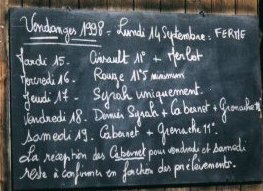 Vendanges 1998 - Lundi 14 Septembre : FERME
Mardi 15. Aniault 11° + Merlot
Mercredi 16. Rouge 11°5 minimum
Jeudi 17 - Syrah uniquement.
Vendredi 18. Dernier Syrah + Cabernet + Grenache 11°
Samedi 19. Cabernet + Grenache 11°.
La reception des Cabernet pour vendredi et samedi
reste à confirmer en fonction des prélèvements.